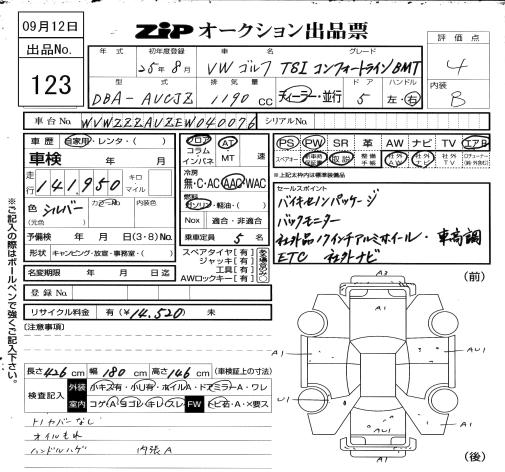 09月12日
出品No.
123
ZiP オークション出品票
評価点
4
内装
B
年式 初年度登録 車名 グレード
25年8月 VW ゴルフ TSI コンフォートラインBMT
型式 排気量 ドア ハンドル
DBA-AUCJZ 1190 CC ディーラー・並行 5 左・右
車台No. WVWZZZAUZEW040076 シリアルNo.
車歴 自家用・レンタ・( )
車検 年 月
走行 141,950 キロ マイル
色 シルバー カラーNo. 内装色
(元色)
予備検 年 月 日(3・8)No.
形状 キャンピング・放宣・事務室・( )
名変期限 年 月 日迄
登録No.
リサイクル料金 有(¥14,520) 未
フロア コラム インパネ AT MT 速
冷房
無・C・AC AAC・WAC
燃料
ガソリン・軽油・( )
Nox 適合・非適合
乗車定員 5 名
スペアタイヤ[有]
ジャッキ[有]
工具[有]
AWロックキー[有]
PS PW SR 革 AW ナビ TV エアB
スペアキー 取説 整備手帳 社外AW 社外ナビ TV
※上記太枠内は標準装備品
セールスポイント
バイキセノンパッケージ
バックモニター
社外品17インチアルミホイール・車高調
ETC 社外ナビ
※ご記入の際はボールペンで強くご記入下さい。
[注意事項]
長さ426cm 幅180cm 高さ146cm (車検証上の寸法)
検査記入
外装 小キズ有・小U有・ホイルA・ドアミラーA・ワレ
室内 コゲA・ヨゴレ・キレ・スレ FW トビ石・A・X要ス
トノカバーなし
オイルもれ
ハンドルハゲ 内張A
(前)
A3
A1
A1
AU1
U1
A1
AU1
A2
(後)